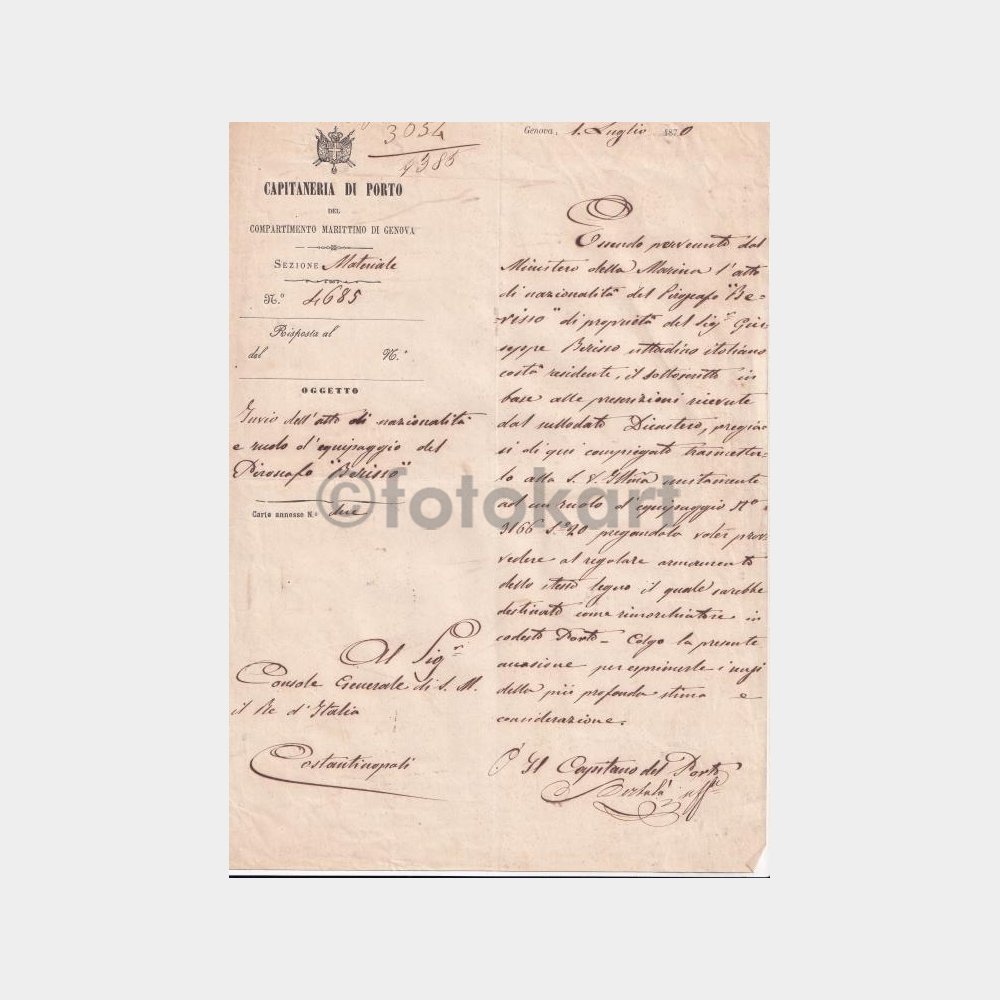 3054
9385
CAPITANERIA DI PORTO
DEL
COMPARTIMENTO MARITTIMO DI GENOVA
SEZIONE Materiale
N.º 4685
Risposta al
del N.º
OGGETTO
Invio dell'atto di nazionalità
e ruolo d'equipaggio del
Piroscafo "Berisso"
Carte annesse N.º due
Al Sigr
Console Generale di S. M.
il Re d'Italia
Costantinopoli
Genova, 1. Luglio 1870
Essendo pervenuto dal
Ministero della Marina l'atto
di nazionalità del Piroscafo "Be-
risso" di proprietà del Sigr Giu-
seppe Berisso cittadino italiano
costà residente, il sottoscritto in
base alle prescrizioni ricevute
dal sullodato Dicastero, pregia-
si di qui compiegato trasmetter-
lo alla S. V. Illma unitamente
ad un ruolo d'equipaggio Nº
3166 pregandola voler prov-
vedere al regolare armamento
dello stesso legno il quale sarebbe
destinato come rimorchiatore in
codesto Porto - Colgo la presente
occasione per esprimerle i sensi
della più profonda stima e
considerazione.
Il Capitano del Porto
©fotokart